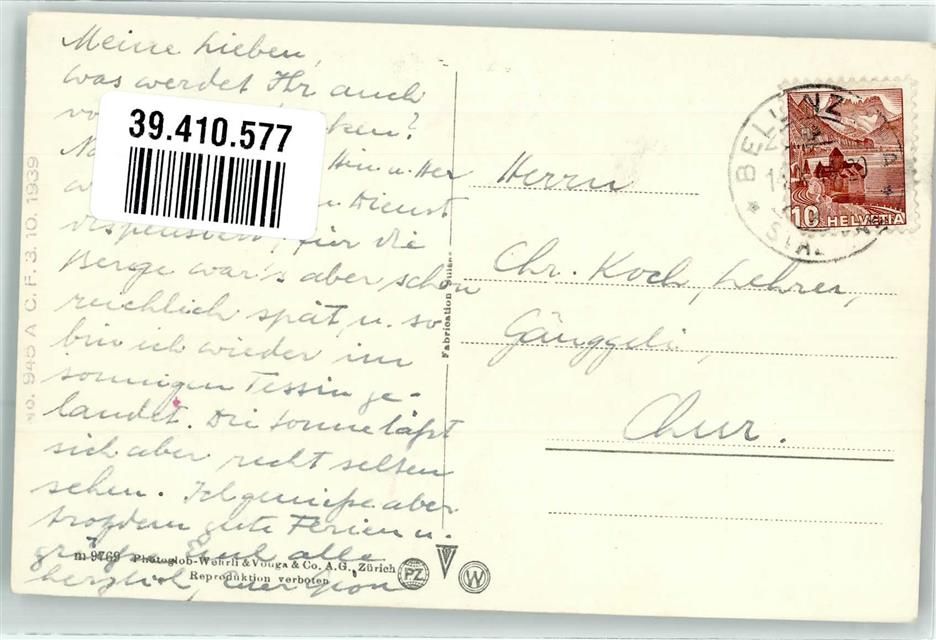 Meine Lieben,
was werdet Ihr auch
von
39.410.577
Hin u. Her
Dienst
dispensiert, für die
Berge war's aber schon
reichlich spät u. so
bin ich wieder im
sonnigen Tessin ge-
landet. Die Sonne läßt
sich aber recht selten
sehen. Ich genieße aber
trotzdem gute Ferien u.
grüße Euch alle
herzlich, Euer
No. 945 A C. F. 3. 10. 1939
Fabrication Suisse
m 9769 Photoglob-Wehrli & Vouga & Co. A.G., Zürich
Reproduktion verboten
PZ
V
W
BELLINZ
10 HELVETIA
Herrn
Chr. Koch, Lehrer,
Gänggeli,
Chur.